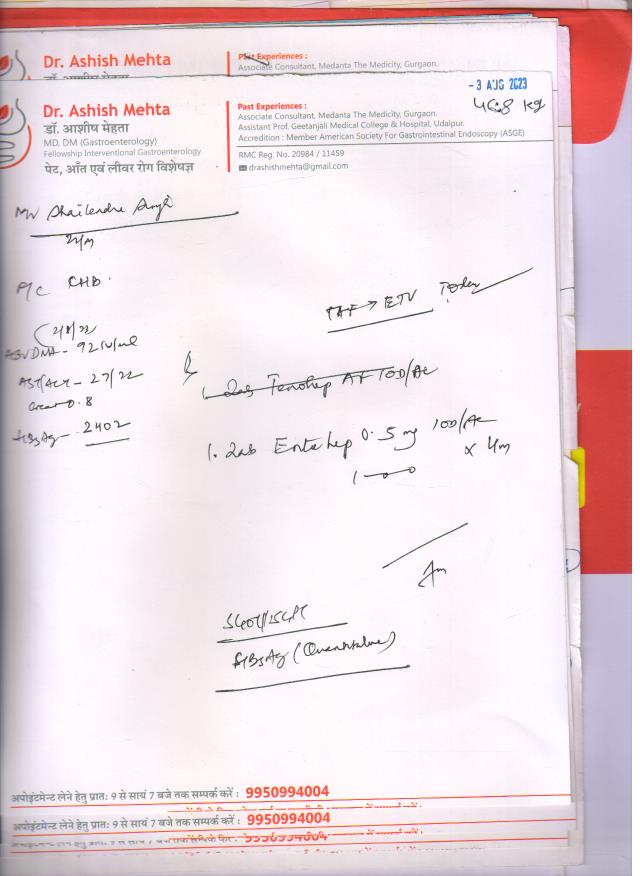 Dr. Ashish Mehta
Past Experiences :
Associate Consultant, Medanta The Medicity, Gurgaon.
- 3 AUG 2023
Dr. Ashish Mehta
डॉ. आशीष मेहता
MD, DM (Gastroenterology)
Fellowship Interventional Gastroenterology
पेट, आँत एवं लीवर रोग विशेषज्ञ
Past Experiences :
Associate Consultant, Medanta The Medicity, Gurgaon.
Assistant Prof. Geetanjali Medical College & Hospital, Udaipur.
Accredition : Member American Society For Gastrointestinal Endoscopy (ASGE)
RMC Reg. No. 20984 / 11459
drashishmehta@gmail.com
kg
Mr Shailendra Singh
CHB
TAF → ETV Today
HBVDNA - 92 IU/ml
AST/ALT - 27/22
Creat 0.8
HBsAg - 2402
1. Tab Tenohep AF 1OD/AC
1. Tab Entehep 0.5 mg 1OD/AC
x 4m
1-0-0
SGOT/SGPT
HBsAg (Quantitative)
अपोइंटमेन्ट लेने हेतु प्रातः 9 से सायं 7 बजे तक सम्पर्क करें : 9950994004
अपोइंटमेन्ट लेने हेतु प्रातः 9 से सायं 7 बजे तक सम्पर्क करें : 9950994004